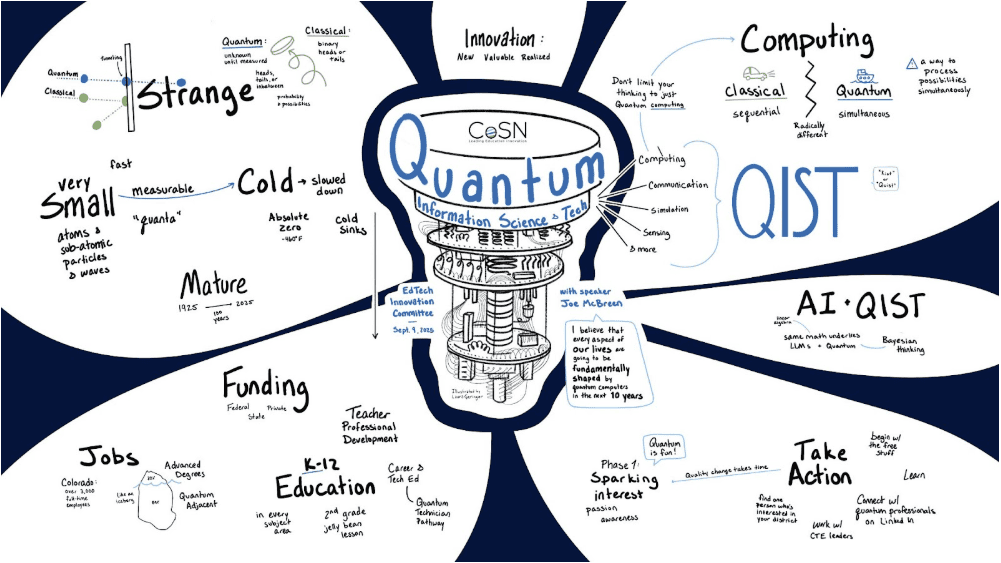 Innovation:
New Valuable Realized
CoSN
Leading Education Innovation
Quantum
Information Science & Tech
EdTech
Innovation
Committee
Sept. 9, 2025
with speaker
Joe McBreen
I believe that
every aspect of
our lives are
going to be
fundamentally
shaped by
quantum computers
in the next 10 years
Illustrated by
tunneling
Quantum
Classical
Strange
Quantum:
unknown
until measured
heads,
tails, or
inbetween
probability
& possibilities
Classical:
binary
heads or
tails
fast
very
Small
measurable
"quanta"
atoms &
sub-atomic
particles
& waves
Cold
slowed
down
Absolute
Zero
-460°F
Cold
Sinks
Mature
1925
2025
100
years
Computing
Don't limit your
thinking to just
Quantum computing
Classical
sequential
Radically
different
Quantum
simultaneous
a way to
process
possibilities
simultaneously
Computing
Communication
Simulation
Sensing
& more
QIST
"Kist"
or
"Quist"
AI + QIST
linear
algebra
same math underlies
LLMs + Quantum
Bayesian
thinking
Funding
Federal Private
State
Teacher
Professional
Development
Jobs
Colorado:
over 3,000
full-time
employees
Like an
iceberg
Advanced
Degrees
Quantum
Adjacent
K-12
Education
in every
subject
area
2nd grade
jelly bean
lesson
Career &
Tech Ed
Quantum
Technician
Pathway
Quantum
is fun!
Phase 1:
Sparking
interest
passion
awareness
Quality change takes time
Take
Action
begin w/
the free
stuff
Learn
Connect w/
quantum professionals
on Linked In
work w/
CTE leaders
find one
person who's
interested in
your district